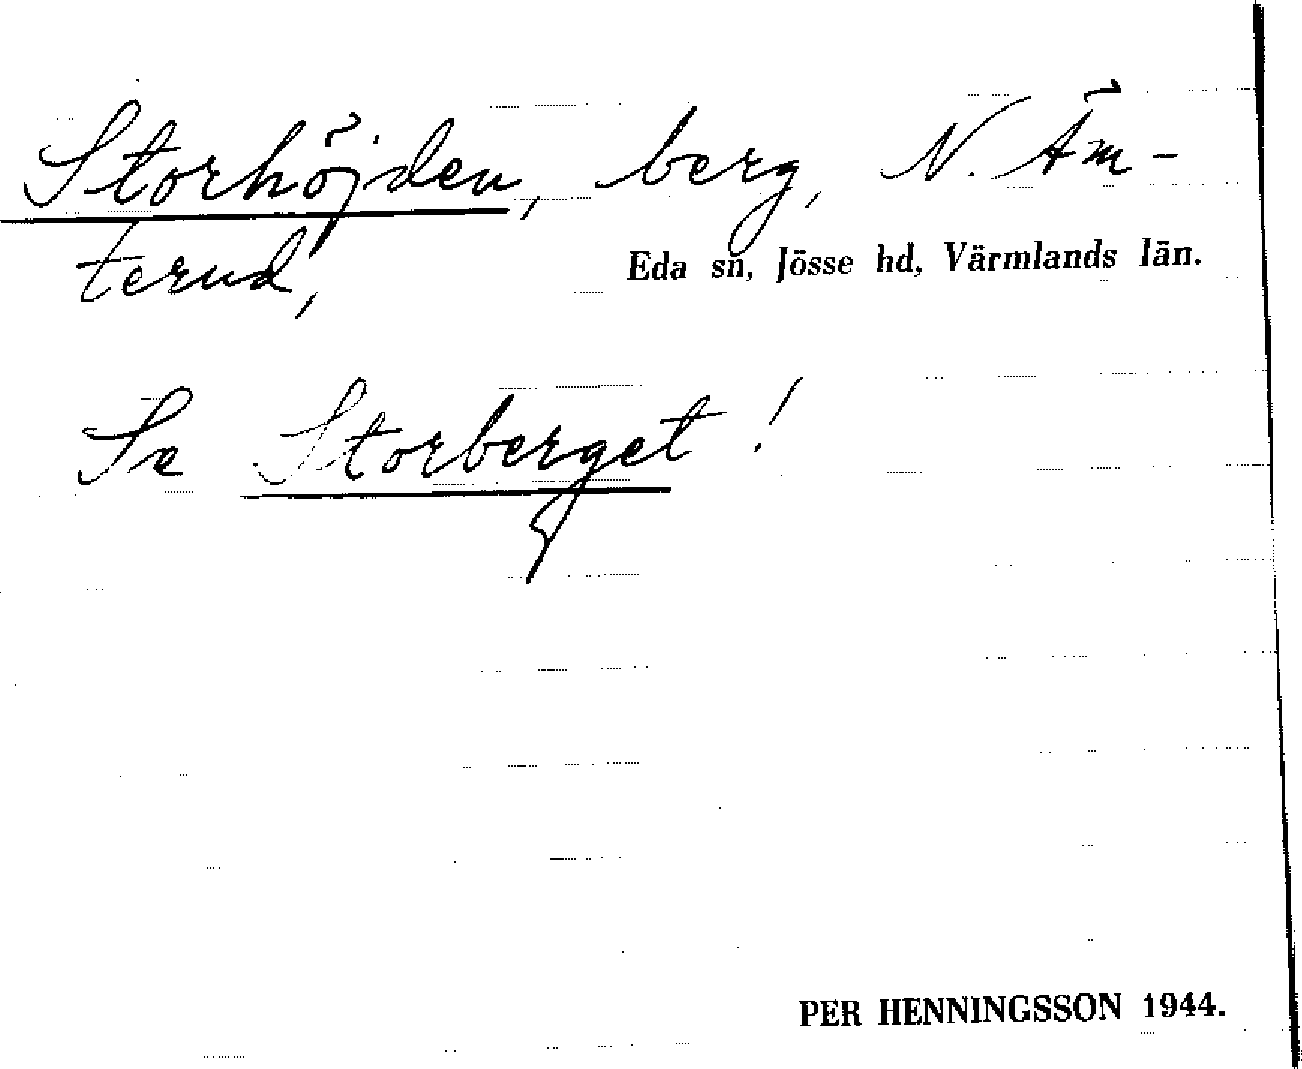 Storhöjden, berg, N. Äm-
terud,
Eda sn, Jösse hd, Värmlands län.
Se Storberget!
PER HENNINGSSON 1944.